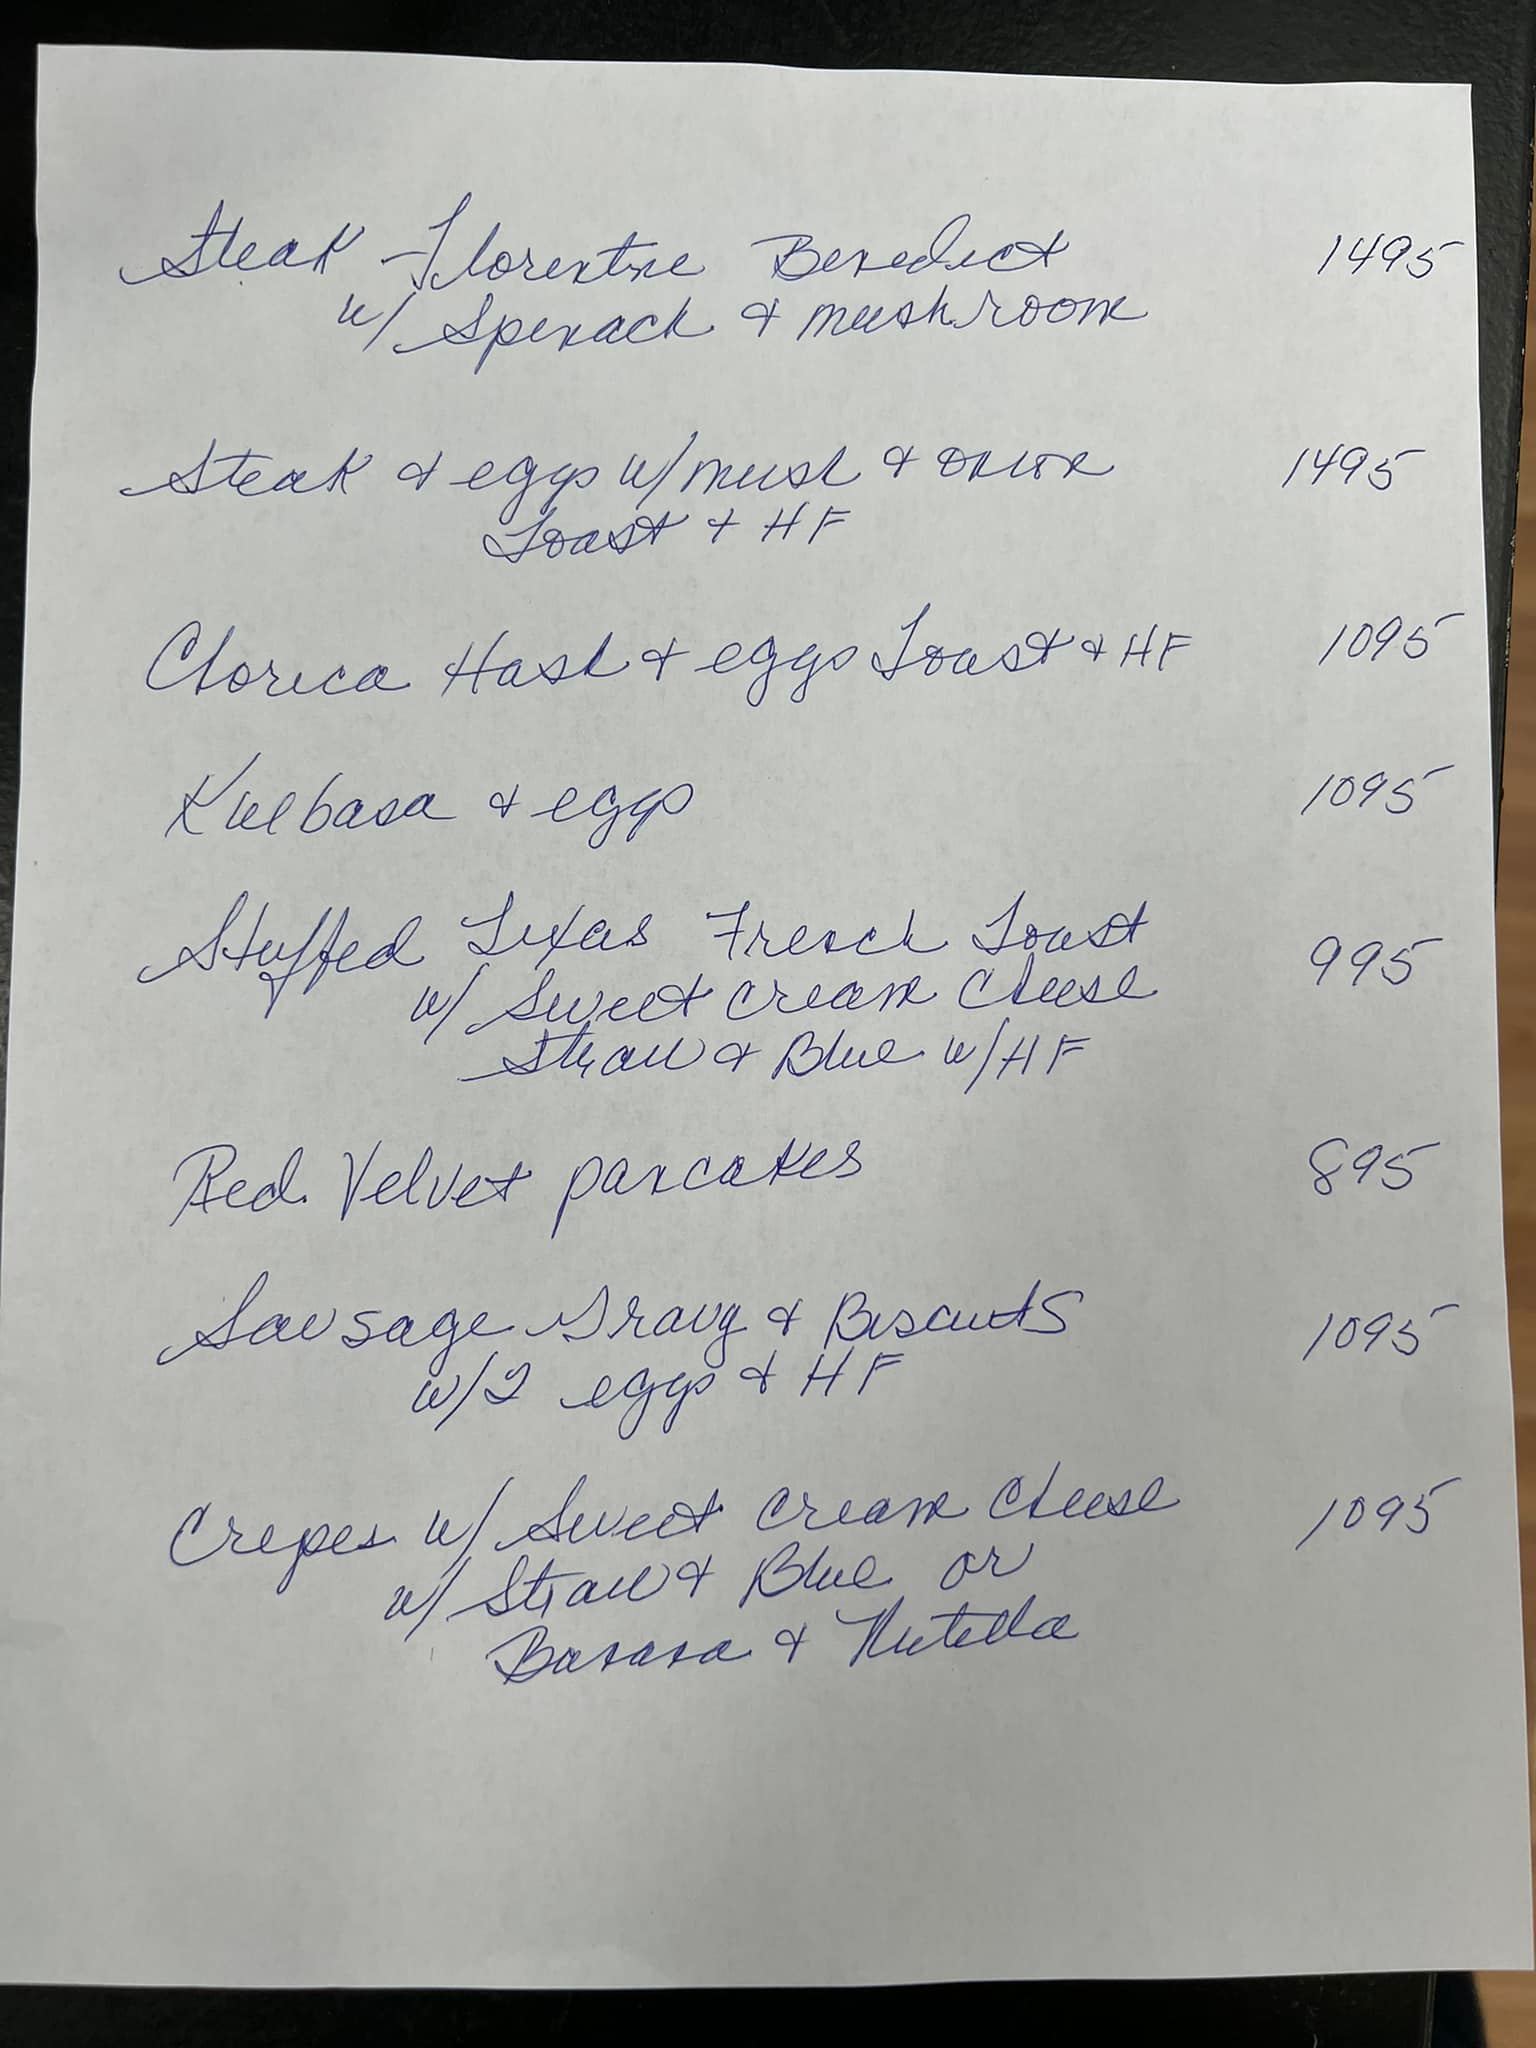 Steak Florentine Benedict 1495
w/ Spinach & mushroom
Steak & eggs w/ mush & onion 1495
Toast & HF
Chorica Hash & eggs Toast & HF 1095
Kielbasa & eggs 1095
Stuffed Texas French Toast 995
w/ Sweet Cream Cheese
Straw & Blue w/ HF
Red Velvet pancakes 895
Sausage Gravy & Biscuits 1095
w/2 eggs & HF
Crepes w/ Sweet Cream Cheese 1095
w/ Straw & Blue or
Banana & Nutella